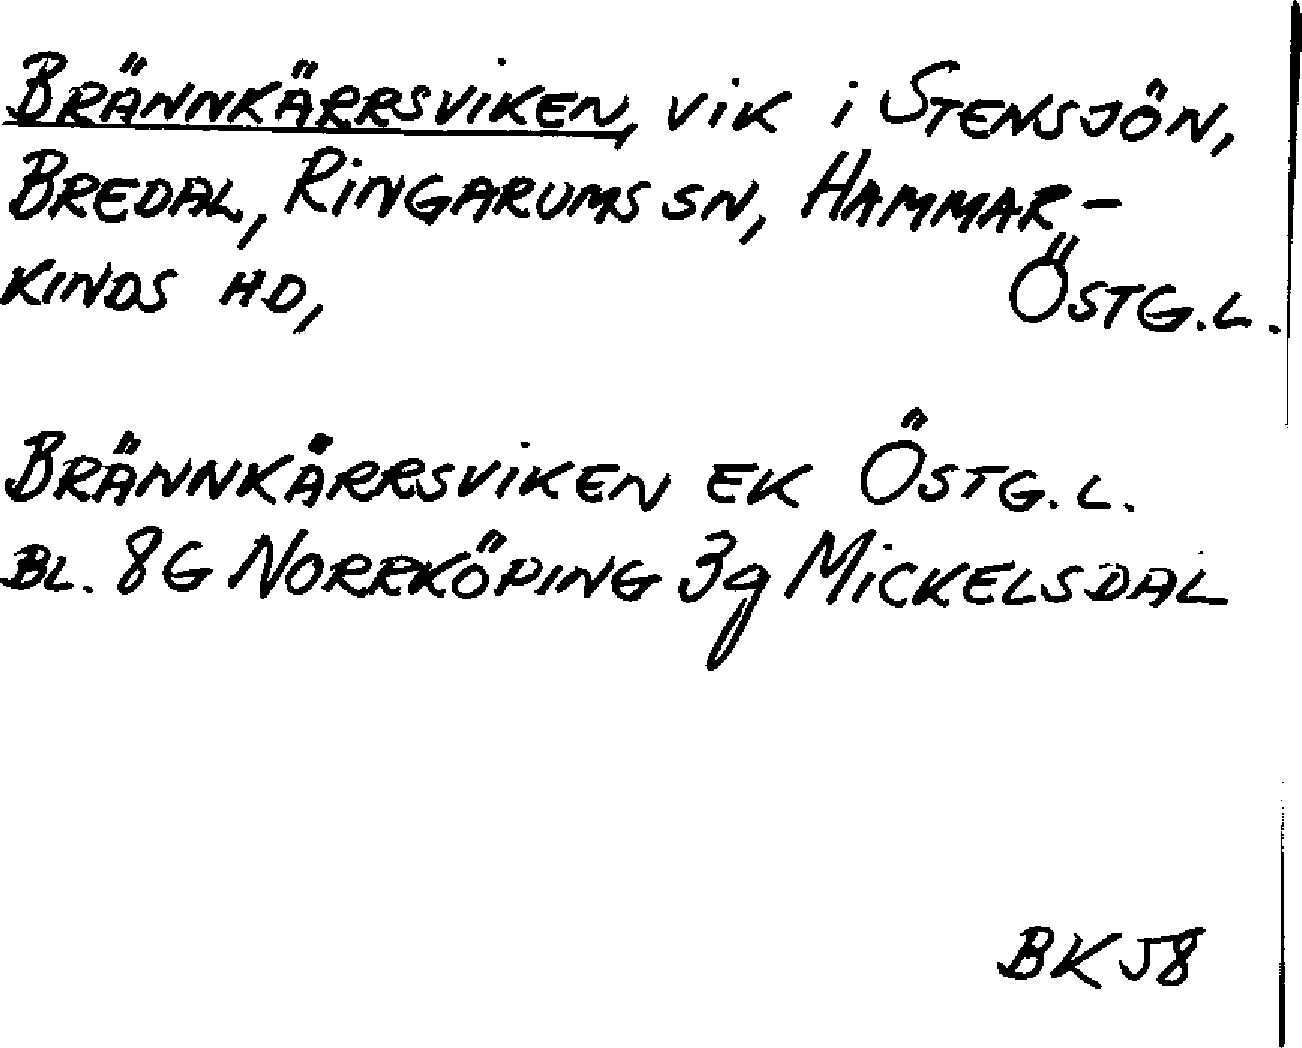 BRÄNNKÄRRSVIKEN, VIK I STENSJÖN,
BREDAL, RINGARUMS SN, HAMMAR-
KINDS HD, ÖSTG.L.
BRÄNNKÄRRSVIKEN EK ÖSTG.L.
BL. 8G NORRKÖPING 3g MICKELSDAL
BK 58